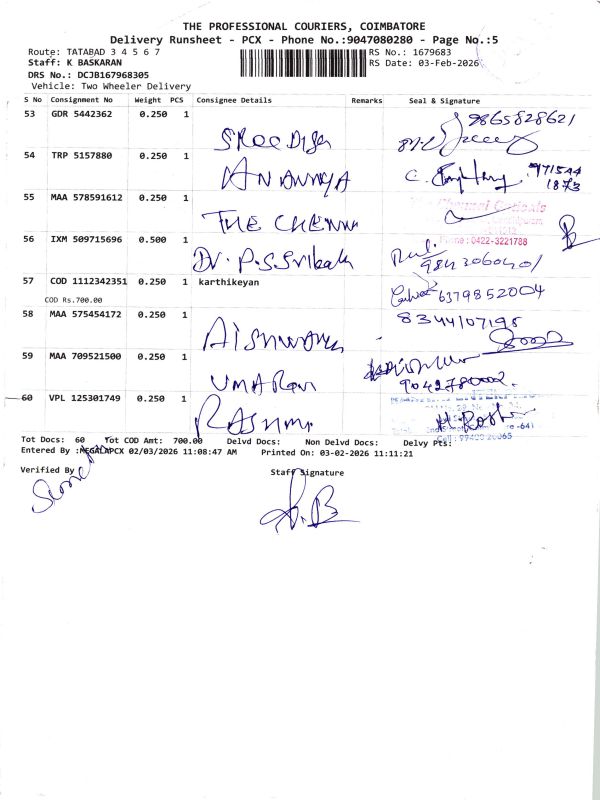 THE PROFESSIONAL COURIERS, COIMBATORE
Delivery Runsheet - PCX - Phone No.:9047080280 - Page No.:5
Route: TATABAD 3 4 5 6 7
RS No.: 1679683
Staff: K BASKARAN
RS Date: 03-Feb-2026
DRS No.: DCJB167968305
Vehicle: Two Wheeler Delivery
S No Consignment No Weight PCS Consignee Details Remarks Seal & Signature
53 GDR 5442362 0.250 1 9865828621
54 TRP 5157880 0.250 1 ANANNYA
55 MAA 578591612 0.250 1 THE CHENN
Phone: 0422-3221788
56 IXM 509715696 0.500 1 Dr. P.S Sribala
9843060401
57 COD 1112342351 0.250 1 karthikeyan
6379852004
COD Rs.700.00
58 MAA 575454172 0.250 1 8344107195
59 MAA 709521500 0.250 1 UMA Rani
60 VPL 125301749 0.250 1 RASHMI
Tot Docs: 60 Tot COD Amt: 700.00 Delvd Docs: Non Delvd Docs: Delvy Pts:
Entered By :MEGALAPCX 02/03/2026 11:08:47 AM Printed On: 03-02-2026 11:11:21
Verified By Staff Signature